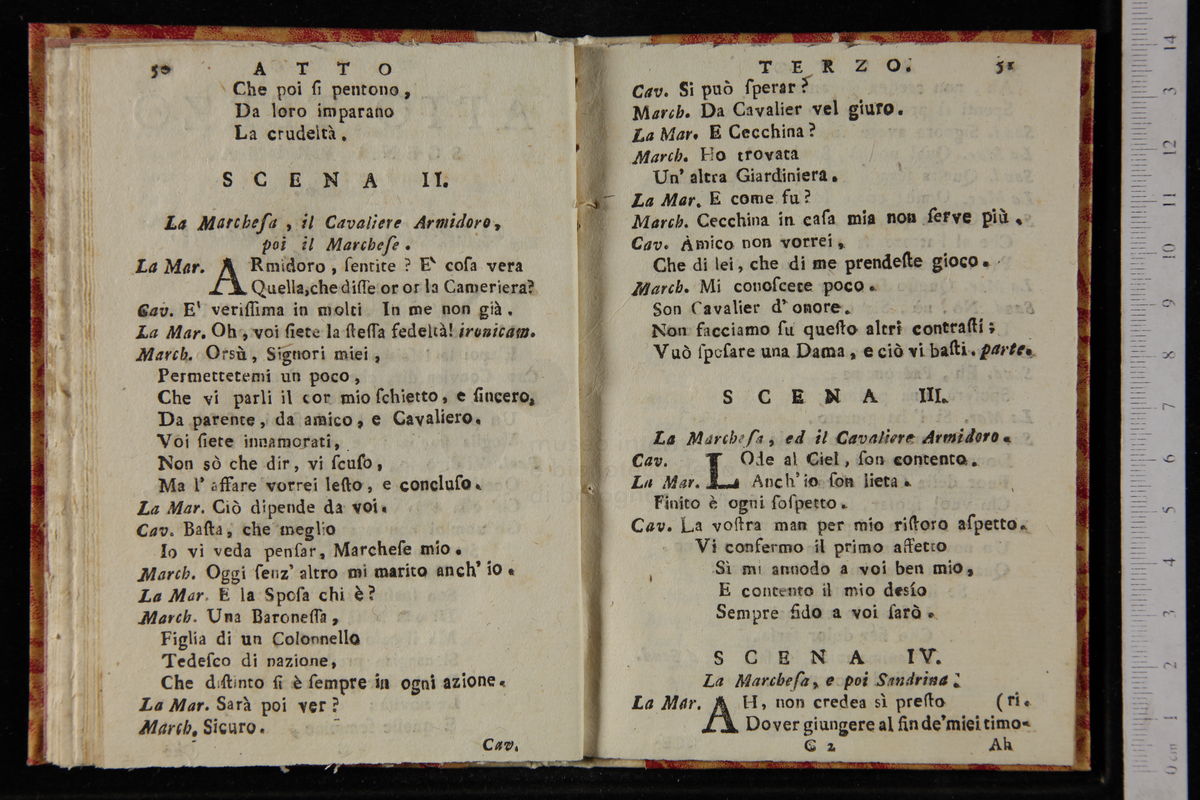 50 A T T O
Che poi ſi pentono,
Da loro imparano
La crudeltà.
S C E N A II.
La Marcheſa, il Cavaliere Armidoro,
poi il Marcheſe.
La Mar. ARmidoro, ſentite? E' coſa vera
Quella, che diſſe or or la Cameriera?
Cav. E' veriſſima in molti In me non già.
La Mar. Oh, voi ſiete la ſteſſa fedeltà! ironicam.
March. Orsù, Signori miei,
Permettetemi un poco,
Che vi parli il cor mio ſchietto, e ſincero,
Da parente, da amico, e Cavaliero.
Voi ſiete innamorati,
Non sò che dir, vi ſcuſo,
Ma l' affare vorrei leſto, e concluſo.
La Mar. Ciò dipende da voi.
Cav. Baſta, che meglio
Io vi veda penſar, Marcheſe mio.
March. Oggi ſenz' altro mi marito anch' io.
La Mar. E la Spoſa chi è?
March. Una Baroneſſa,
Figlia di un Colonnello
Tedeſco di nazione,
Che diſtinto ſi è ſempre in ogni azione.
La Mar. Sarà poi ver?
March. Sicuro.
Cav.
T E R Z O. 51
Cav. Si può ſperar?
March. Da Cavalier vel giuro.
La Mar. E Cecchina?
March. Ho trovata
Un' altra Giardiniera.
La Mar. E come fu?
March. Cecchina in caſa mia non ſerve più.
Cav. Amico non vorrei,
Che di lei, che di me prendeſte gioco.
March. Mi conoſcete poco.
Son Cavalier d' onore.
Non facciamo ſu queſto altri contraſti;
Vuò ſpoſare una Dama, e ciò vi baſti. parte.
S C E N A III.
La Marcheſa, ed il Cavaliere Armidoro.
Cav. LOde al Ciel, ſon contento.
La Mar. Anch' io ſon lieta.
Finito è ogni ſoſpetto.
Cav. La voſtra man per mio riſtoro aſpetto.
Vi confermo il primo affetto
Sì mi annodo a voi ben mio,
E contento il mio desío
Sempre fido a voi ſarò.
S C E N A IV.
La Marcheſa, e poi Sandrina.
La Mar. AH, non credea sì preſto (ri.
Dover giungere al fin de' miei timo-
C 2 Ah